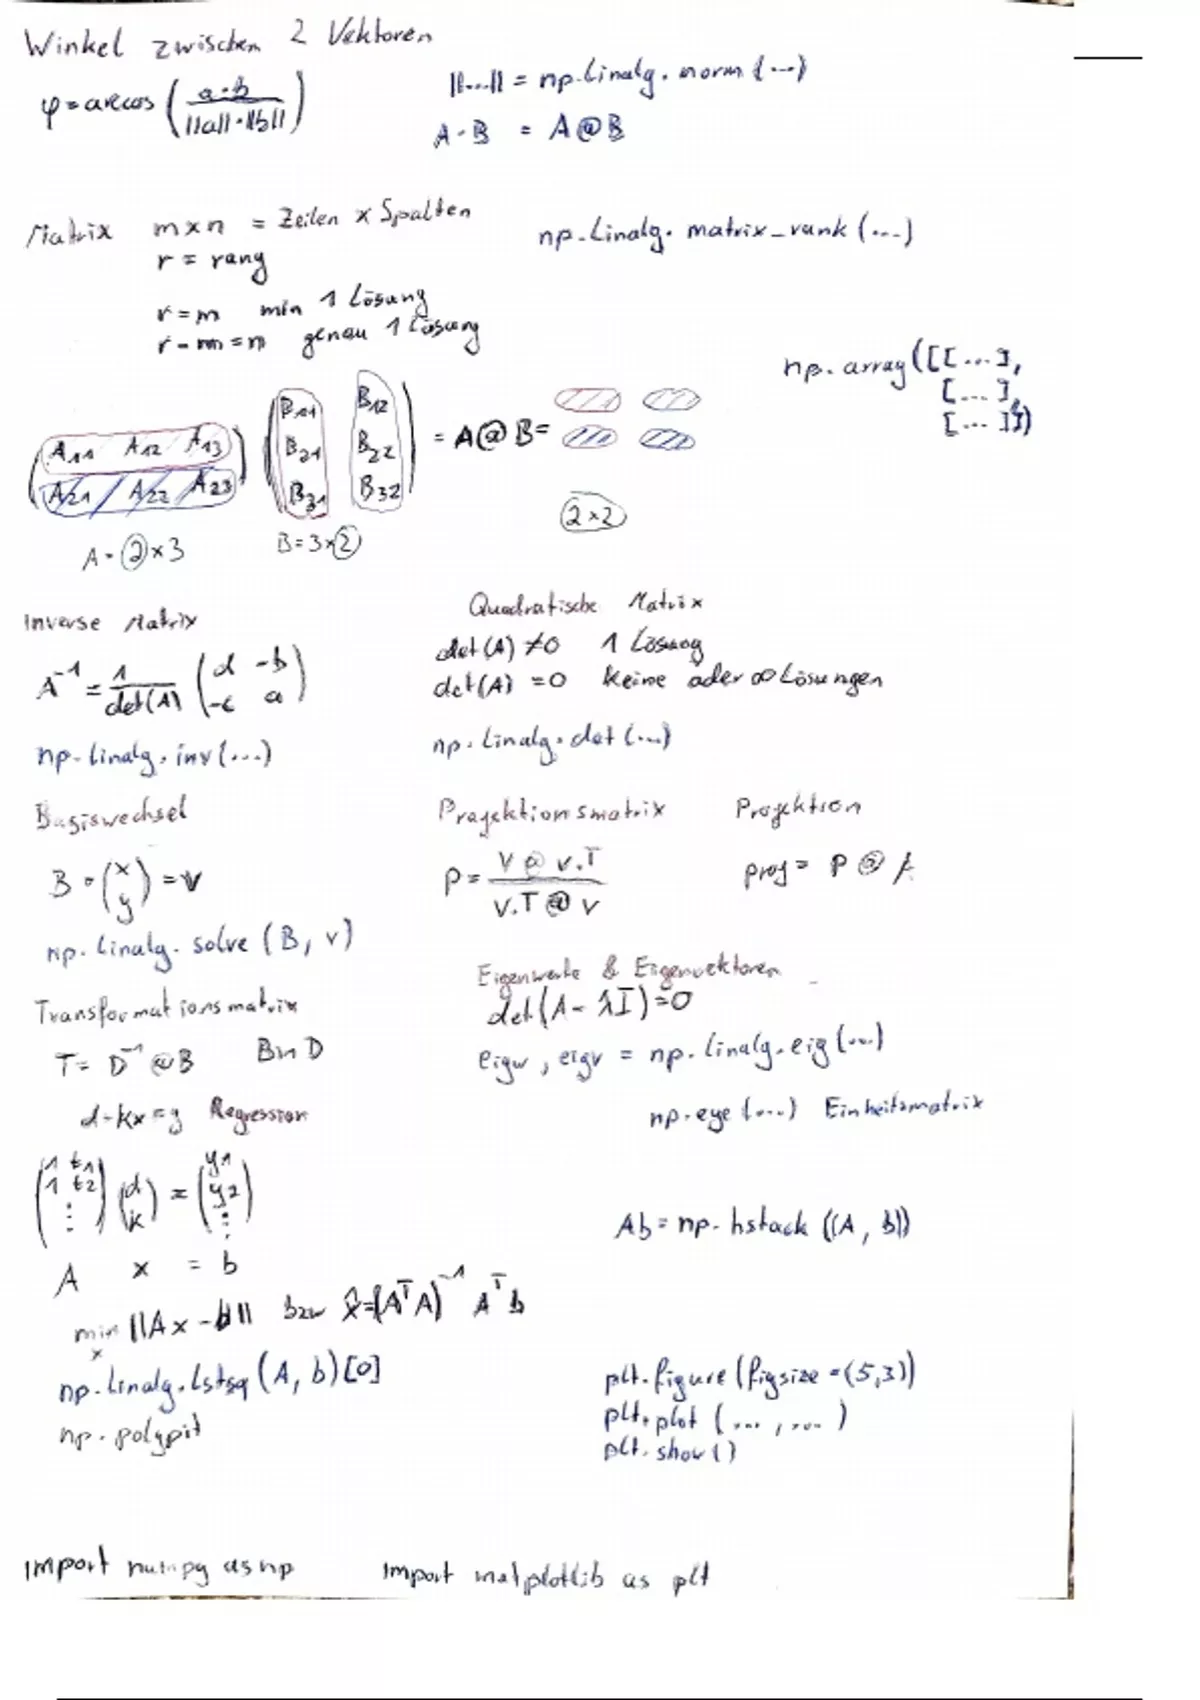 Winkel zwischen 2 Vektoren
φ = arccos (a·b / ||a||·||b||)
||...|| = np.linalg.norm(...)
A·B = A@B
Matrix m×n = Zeilen × Spalten
r = rang
np.linalg.matrix_rank(...)
r=m min 1 Lösung
r=m=n genau 1 Lösung
np.array([[...],
[...],
[...]])
(A11 A12 A13) (B11 B12)
(A21 A22 A23) (B21 B22) = A@B =
(B31 B32)
2×2
A = 2×3 B = 3×2
Inverse Matrix
A⁻¹ = 1/det(A) (d -b
-c a)
np.linalg.inv(...)
Quadratische Matrix
det(A) ≠ 0 1 Lösung
det(A) = 0 keine oder ∞ Lösungen
np.linalg.det(...)
Basiswechsel
B·(x
y) = v
np.linalg.solve(B, v)
Projektionsmatrix
P = v@v.T / v.T@v
Projektion
proj = P @
Transformationsmatrix
T = D⁻¹@B B in D
Eigenwerte & Eigenvektoren
det(A-λI)=0
eigw, eigv = np.linalg.eig(...)
np.eye(...) Einheitsmatrix
d-kx=y Regression
(1 t1
1 t2
⋮) (d
k) = (y1
y2
⋮)
A x = b
Ab = np.hstack((A, b))
min ||Ax - b|| bzw x̂=(AᵀA)⁻¹ Aᵀb
x
np.linalg.lstsq(A, b)[0]
np.polypit
plt.figure(figsize=(5,3))
plt.plot(..., ...)
plt.show()
import numpy as np import matplotlib as plt